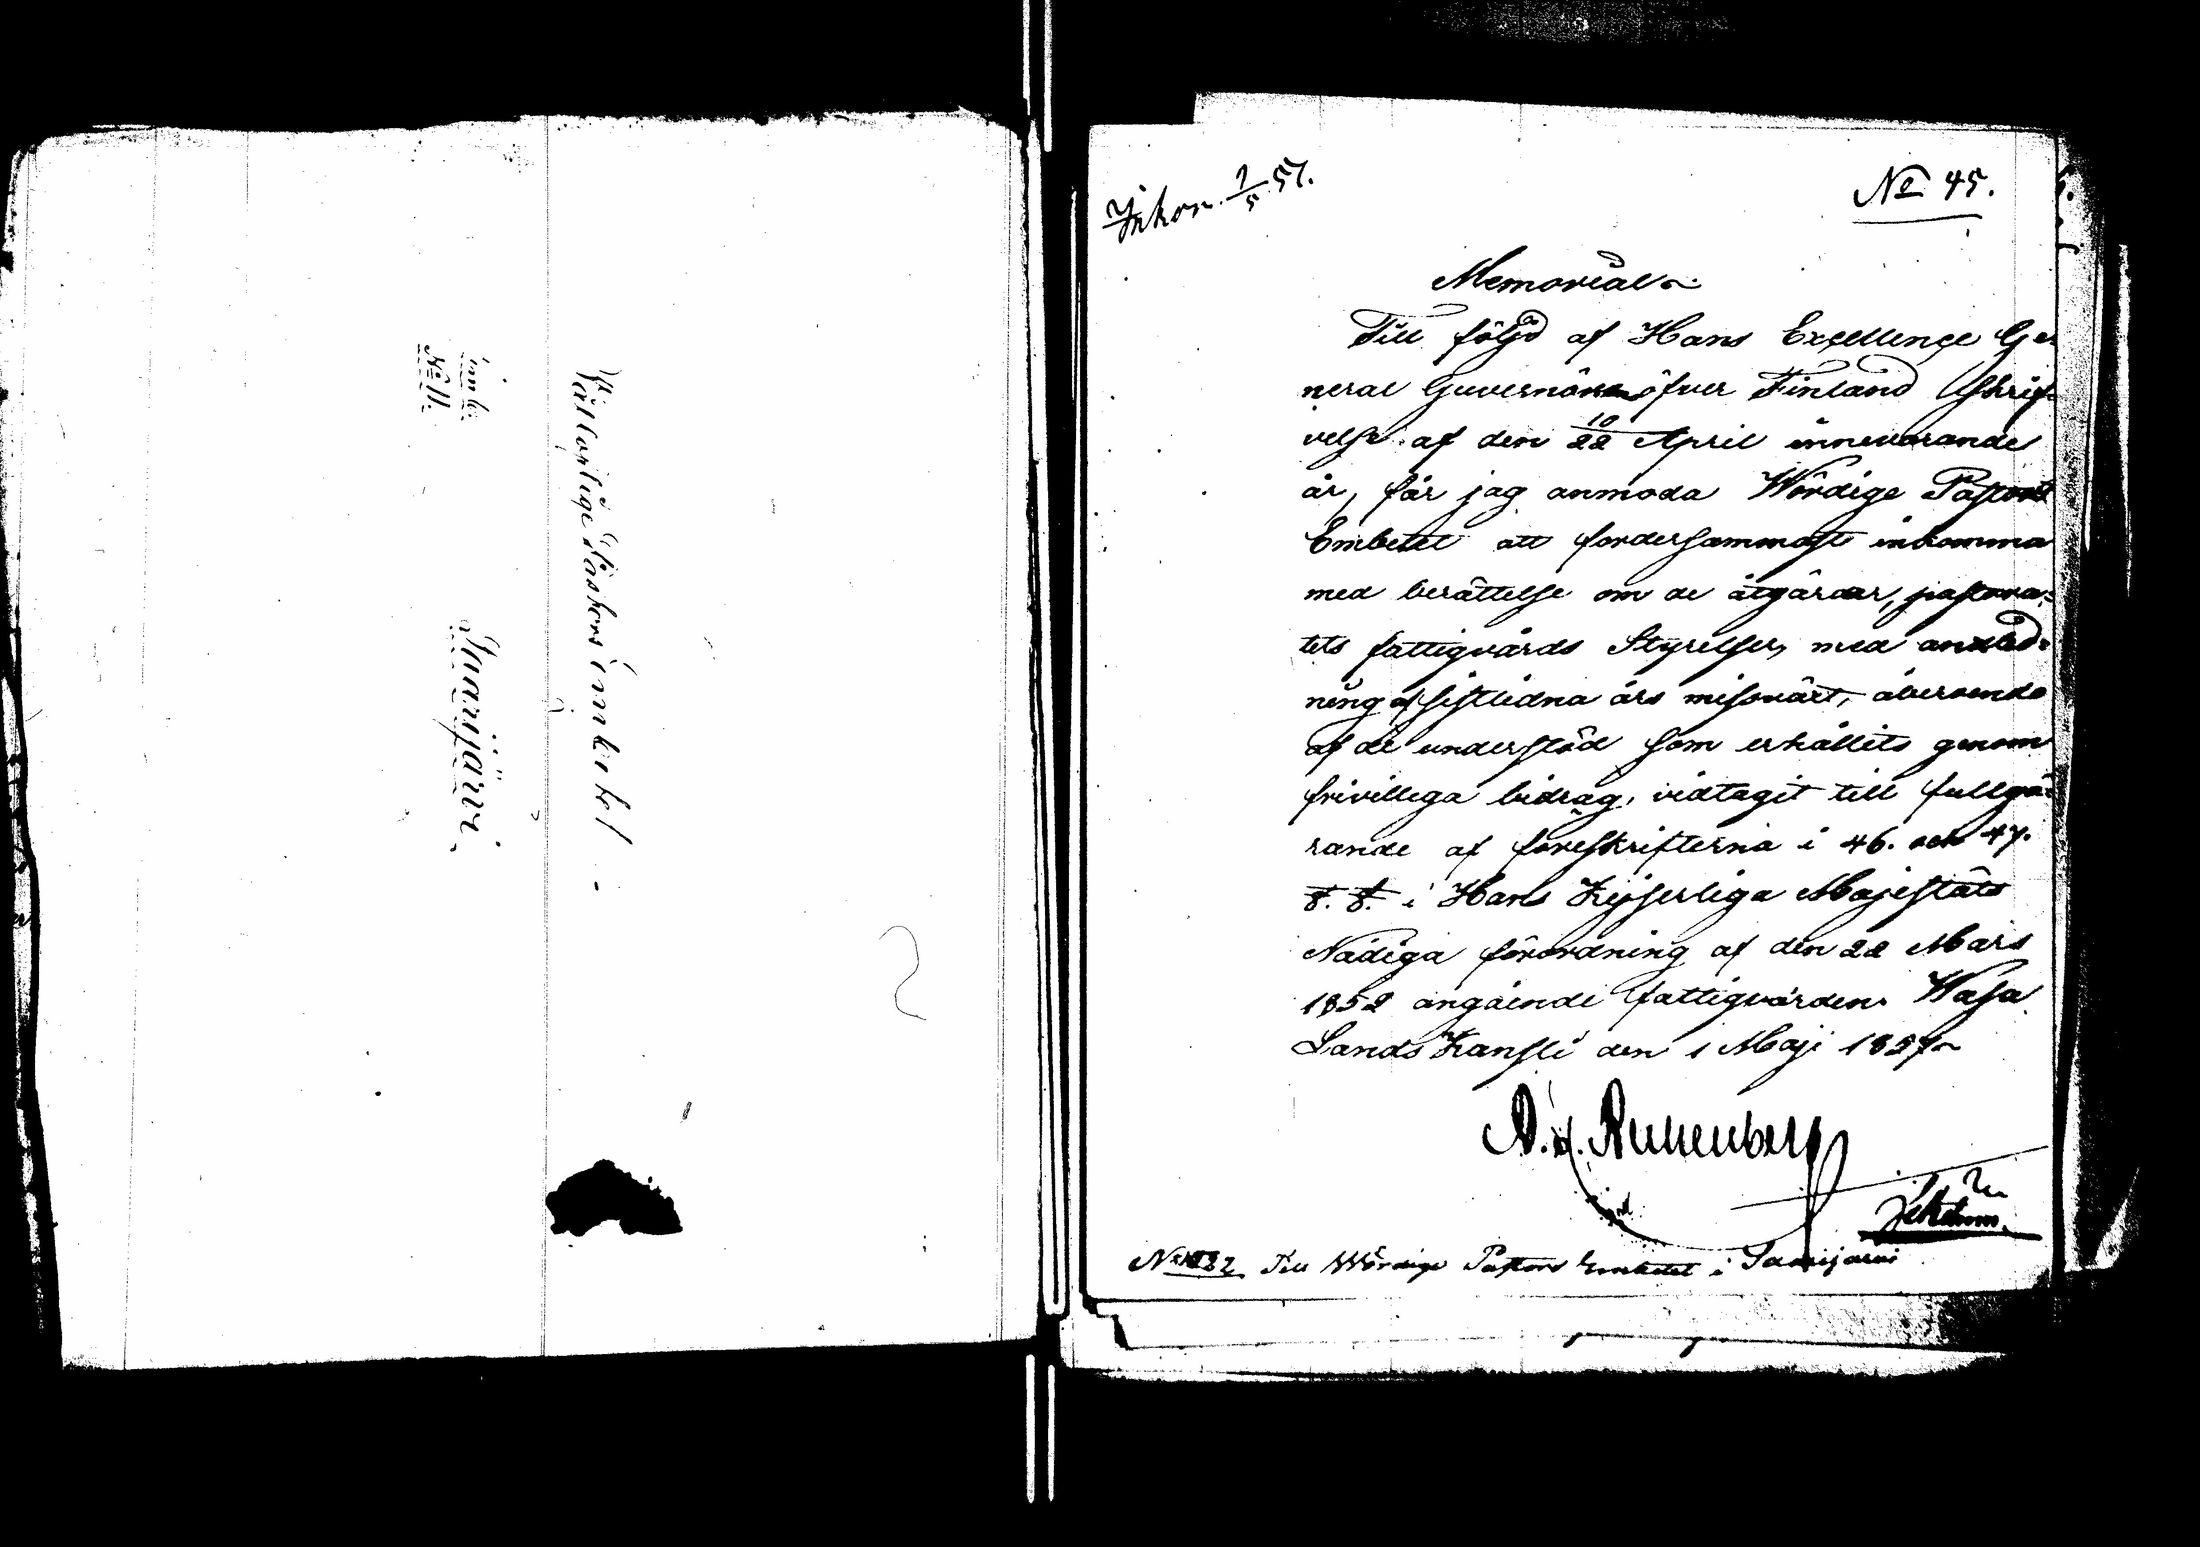 Vällovlige Pastors embetet
Saarijärvi
emb.
No 11.
Inkom. 7/5 57.
No 45.
Memorial
Till följd af Hans Excellence Ge-
neral Guvernören öfver Finland Skrif-
velse af den 10/22 April innevarande
år, får jag anmoda Wördige Pastors
Embetet att fordersammast inkomma
med berättelse om de åtgärder, pastora-
tets fattigvårds Styrelser, med anled-
ning af sistlidna års missväxt, oberoende
af de understöd som erhållits genom
frivilliga bidrag, vidtagit till fullgö-
rande af föreskrifterna i 46. och 47.
§. §. i Hans Kejserliga Majestäts
Nådiga förordning af den 22 Mars
1852 angående fattigvården. Wasa
Lands Kansli den 1 Maji 1857
No 1032 Till Wördige Pastors Embetet i Saarijärvi